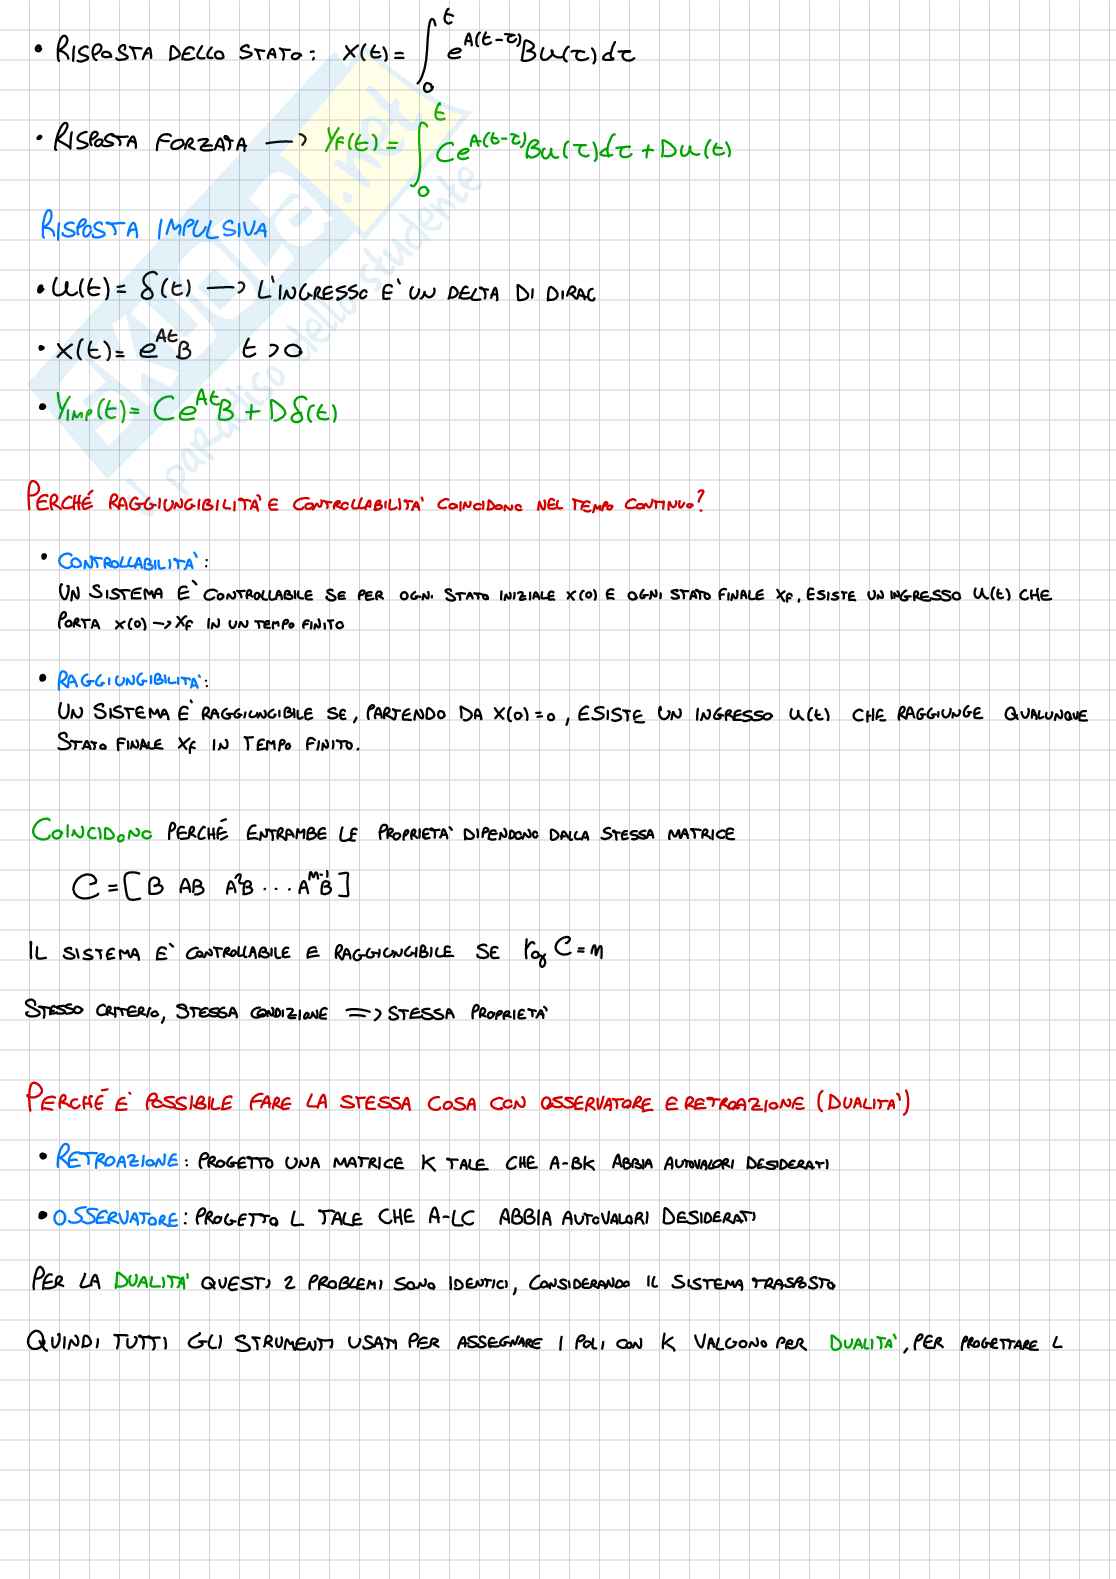 • RISPOSTA DELLO STATO: x(t) = ∫₀ᵗ e^{A(t-τ)}Bu(τ)dτ
• RISPOSTA FORZATA —> Y_F(t) = ∫₀ᵗ Ce^{A(t-τ)}Bu(τ)dτ + Du(t)
RISPOSTA IMPULSIVA
• u(t) = δ(t) —> L'INGRESSO E' UN DELTA DI DIRAC
• x(t) = e^{At}B t>0
• Y_IMP(t) = Ce^{At}B + Dδ(t)
PERCHÉ RAGGIUNGIBILITA' E CONTROLLABILITA' COINCIDONO NEL TEMPO CONTINUO?
• CONTROLLABILITA':
UN SISTEMA E' CONTROLLABILE SE PER OGNI STATO INIZIALE X(0) E OGNI STATO FINALE X_F, ESISTE UN INGRESSO U(t) CHE
PORTA X(0) —> X_F IN UN TEMPO FINITO
• RAGGIUNGIBILITA':
UN SISTEMA E' RAGGIUNGIBILE SE, PARTENDO DA X(0)=0, ESISTE UN INGRESSO U(t) CHE RAGGIUNGE QUALUNQUE
STATO FINALE X_F IN TEMPO FINITO.
COINCIDONO PERCHÉ ENTRAMBE LE PROPRIETA' DIPENDONO DALLA STESSA MATRICE
C = [B AB A²B ... A^{m-1}B]
IL SISTEMA E' CONTROLLABILE E RAGGIUNGIBILE SE rg C = m
STESSO CRITERIO, STESSA CONDIZIONE => STESSA PROPRIETA'
PERCHÉ E' POSSIBILE FARE LA STESSA COSA CON OSSERVATORE E RETROAZIONE (DUALITA')
• RETROAZIONE: PROGETTO UNA MATRICE K TALE CHE A-BK ABBIA AUTOVALORI DESIDERATI
• OSSERVATORE: PROGETTO L TALE CHE A-LC ABBIA AUTOVALORI DESIDERATI
PER LA DUALITA' QUESTI 2 PROBLEMI SONO IDENTICI, CONSIDERANDO IL SISTEMA TRASPOSTO
QUINDI TUTTI GLI STRUMENTI USATI PER ASSEGNARE I POLI CON K VALGONO PER DUALITA', PER PROGETTARE L
skuola.net
il paradiso dello studente